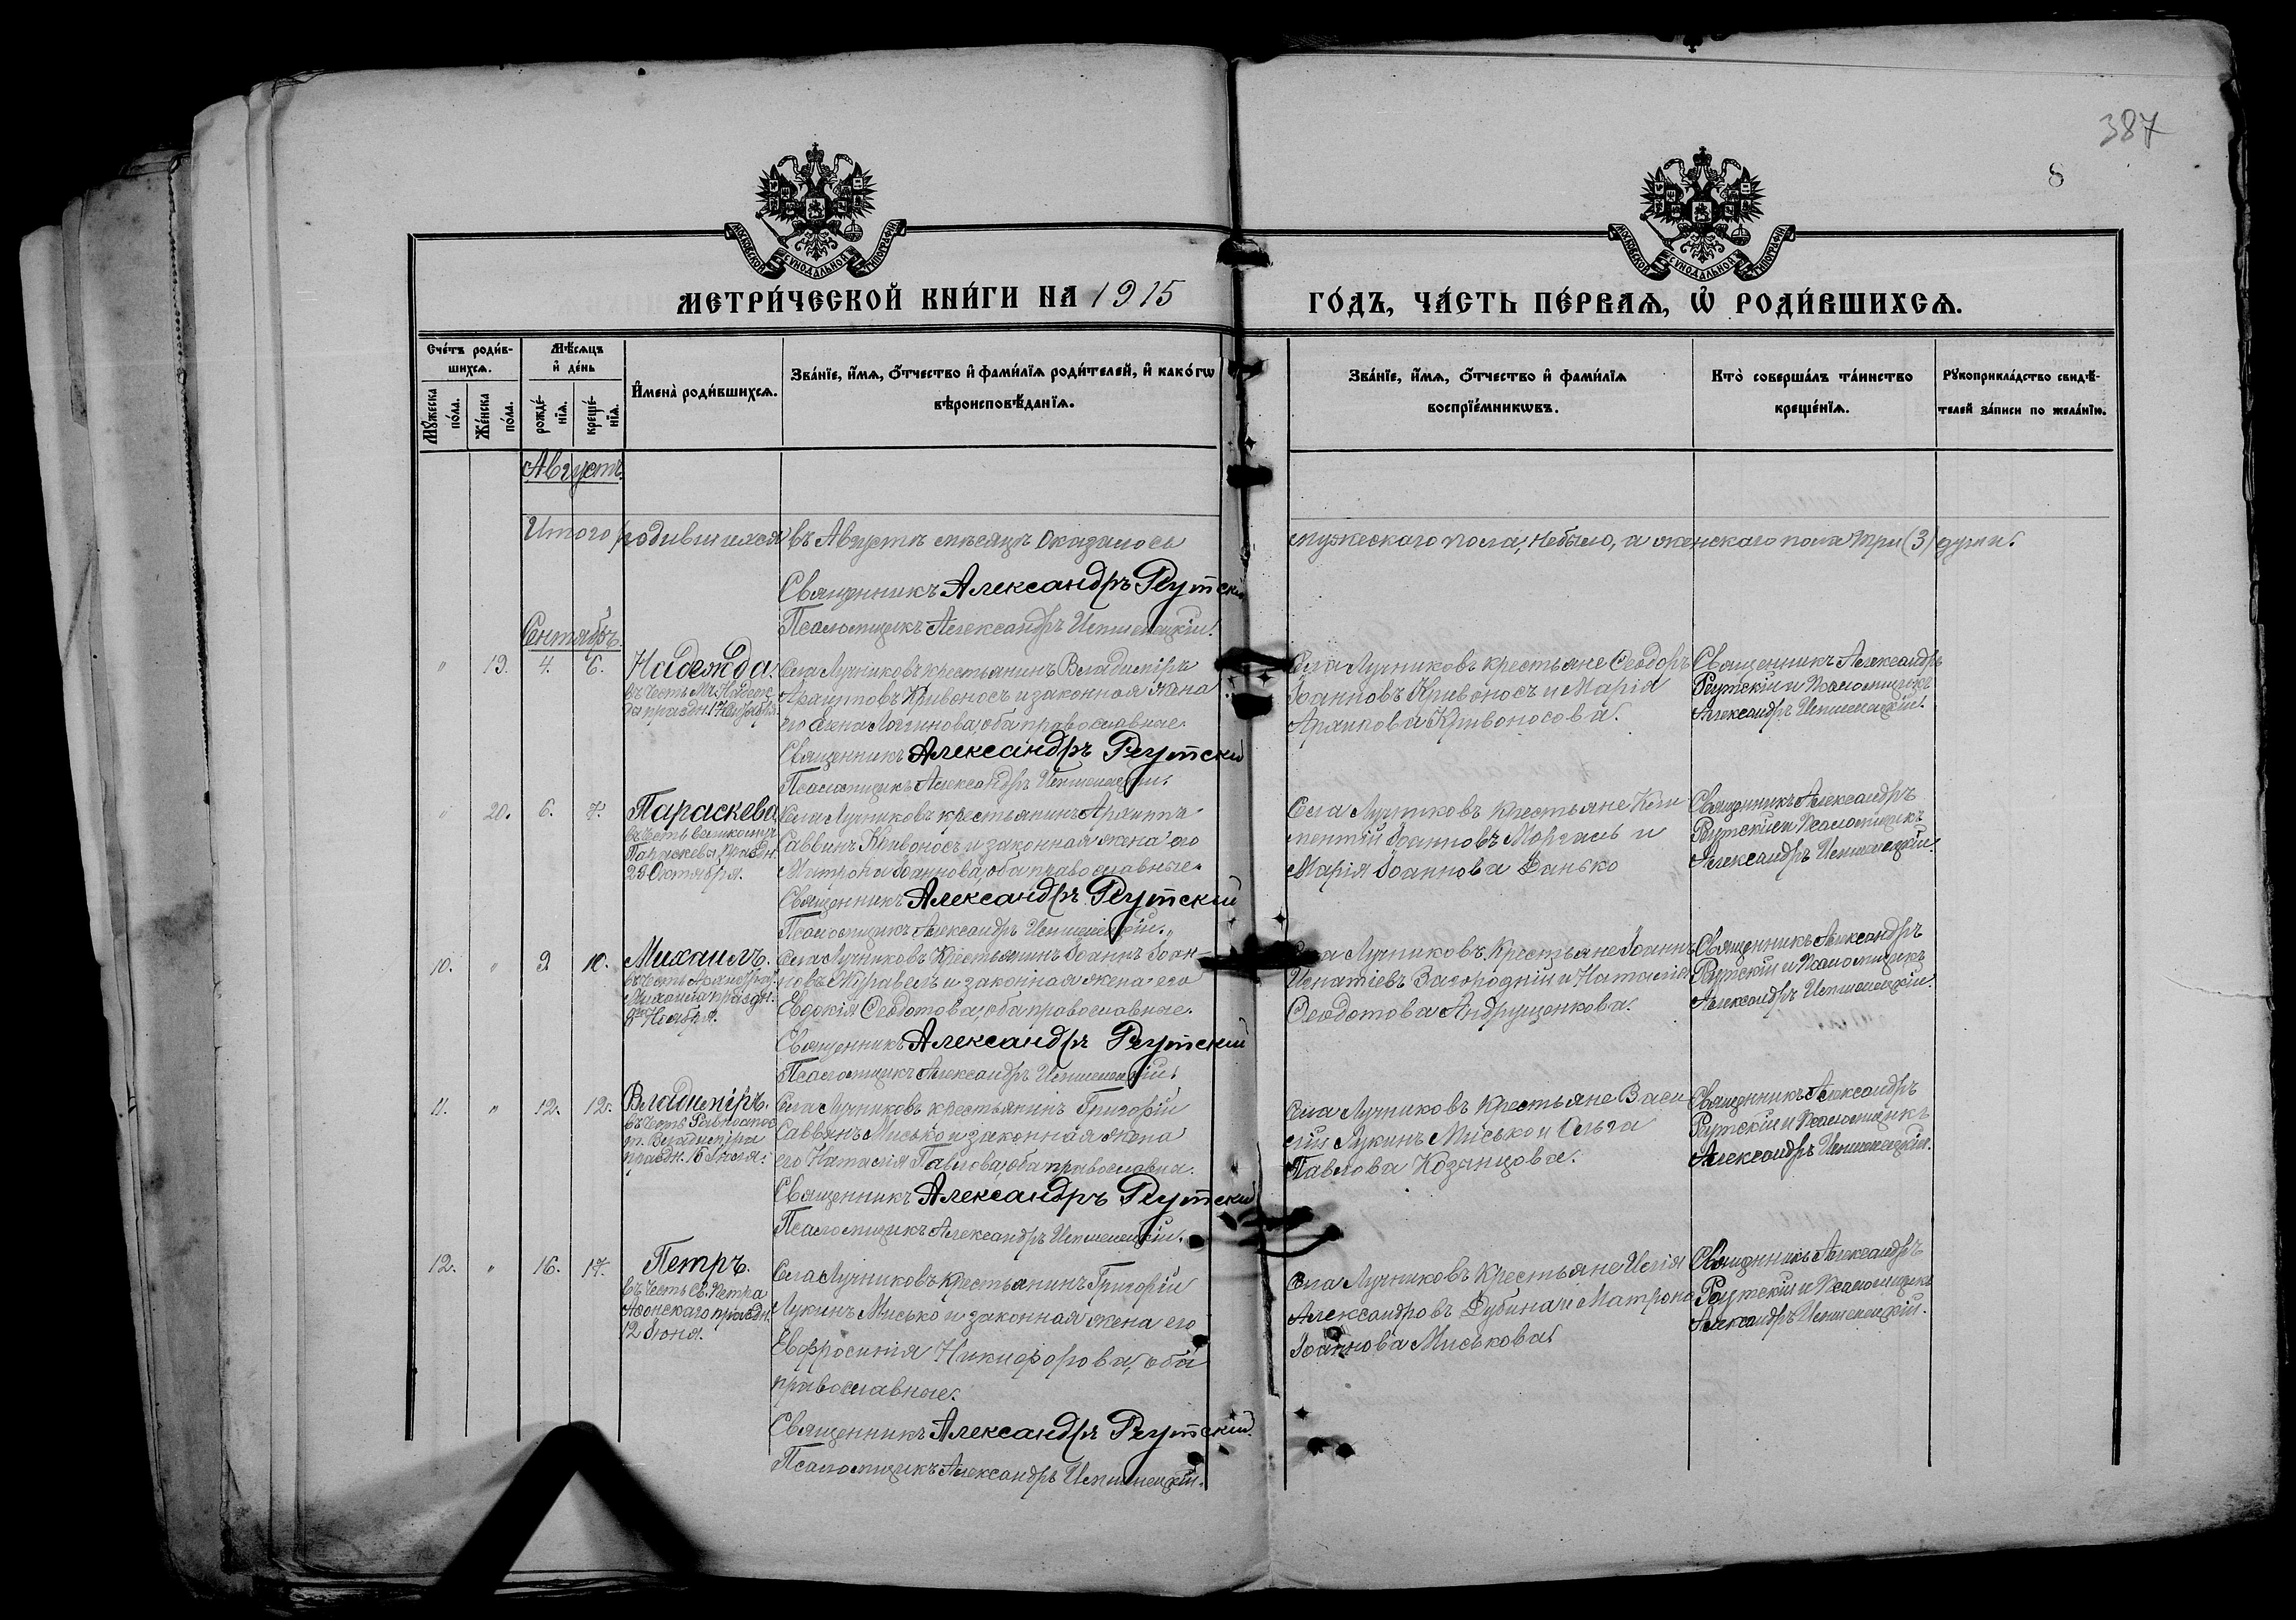 387
8
МОСКОВСКОЙ СѴНОДАЛЬНОЙ ТИПОГРАФІИ
МОСКОВСКОЙ СѴНОДАЛЬНОЙ ТИПОГРАФІИ
МЕТРИ́ЧЕСКОЙ КНИ́ГИ НА 1915
ГО́ДЪ, ЧА́СТЬ ПЕ́РВАЯ, Ѡ҆ РОДИ́ВШИХСѦ.
Сче́тъ роди́в-
шихсѧ.
Мѣ́сѧцъ
и҆ де́нь
Мꙋ́жеска
по́ла.
Же́нска
по́ла.
рожде́-
нїѧ.
креще́-
нїѧ.
И҆мена̀ роди́вшихсѧ.
Зва́нїе, и҆́мѧ, ѻ҆́тчество и҆ фами́лїѧ роди́телей, и҆ како́гѡ
вѣроисповѣ́данїѧ.
Зва́нїе, и҆́мѧ, ѻ҆́тчество и҆ фами́лїѧ
воспрїе́мникѡвъ.
Кто̀ соверша́лъ та́инство
креще́нїѧ.
Рꙋкоприкла́дство свидѣ́-
телей за́писи по жела́нїю.
Августъ.
Итого родившихся въ Августѣ мѣсяцѣ оказалось
мужескаго пола, небыло, а женскаго пола три (3) души.
Священникъ Александръ Реутскій
Псаломщикъ Александръ
Сентябрь.
" 19. 4. 6. Надежда.
въ честь Мч. Надеж-
ды праздн. 17 Сентября.
Села Лучниковъ крестьянинъ Владиміръ
Архиповъ Кривоносъ и законная жена
его Анна Логгинова, оба православные.
Священникъ Александръ Реутскій
Псаломщикъ Александръ
Села Лучниковъ крестьяне Ѳеодоръ
Іоанновъ Кривоносъ и Марія
Архипова Кривоносова.
Священникъ Александръ
Реутскій и Псаломщикъ
Александръ
" 20. 6. 7. Параскева
въ честь великомуч.
Параскевы, праздн.
28 Октября.
Села Лучниковъ крестьянинъ Архиппъ
Саввинъ Кривоносъ и законная жена его
Матрона Іоаннова, оба православные.
Священникъ Александръ Реутскій
Псаломщикъ Александръ
Села Лучниковъ крестьяне
Іоанновъ Моргаль и
Марія Іоаннова Данько
Священникъ Александръ
Реутскій и Псаломщикъ
Александръ
10. " 9 10. Михаилъ.
въ честь Архистрат.
Михаила праздн.
8 Ноября.
Села Лучниковъ Крестьянинъ Іоаннъ Іоан-
новъ Журавель и законная жена его
Евдокія Ѳеодотова, оба православные.
Священникъ Александръ Реутскій
Псаломщикъ Александръ
Села Лучниковъ, Крестьяне Іоаннъ
Игнатіевъ Загородній и Наталія
Ѳеодотова Андрущенкова.
Священникъ Александръ
Реутскій и Псаломщикъ
Александръ
11. " 12. 12. Владиміръ.
въ честь Равноапос-
т. Владиміра
праздн. 15 Іюля.
Села Лучниковъ крестьянинъ Григорій
Саввинъ Мисько и законная жена
его Наталія Павлова, оба православны.
Священникъ Александръ Реутскій
Псаломщикъ Александръ
Села Лучниковъ Крестьяне Васи
лій Лукинъ Мисько и Ольга
Павлова Козанцова.
Священникъ Александръ
Реутскій и Псаломщикъ
Александръ
12. " 16. 17. Петръ.
въ честь Св. Петра
Аѳонскаго праздн.
12 Іюня.
Села Лучниковъ Крестьянинъ Григорій
Лукинъ Мисько и законная жена его
Евфросинія Никифорова, оба
православные.
Священникъ Александръ Реутскій.
Псаломщикъ Александръ
Села Лучниковъ Крестьяне Илія
Александровъ Дубина и Матрона
Іоаннова Миськова.
Священникъ Александръ
Реутскій и Псаломщикъ
Александръ